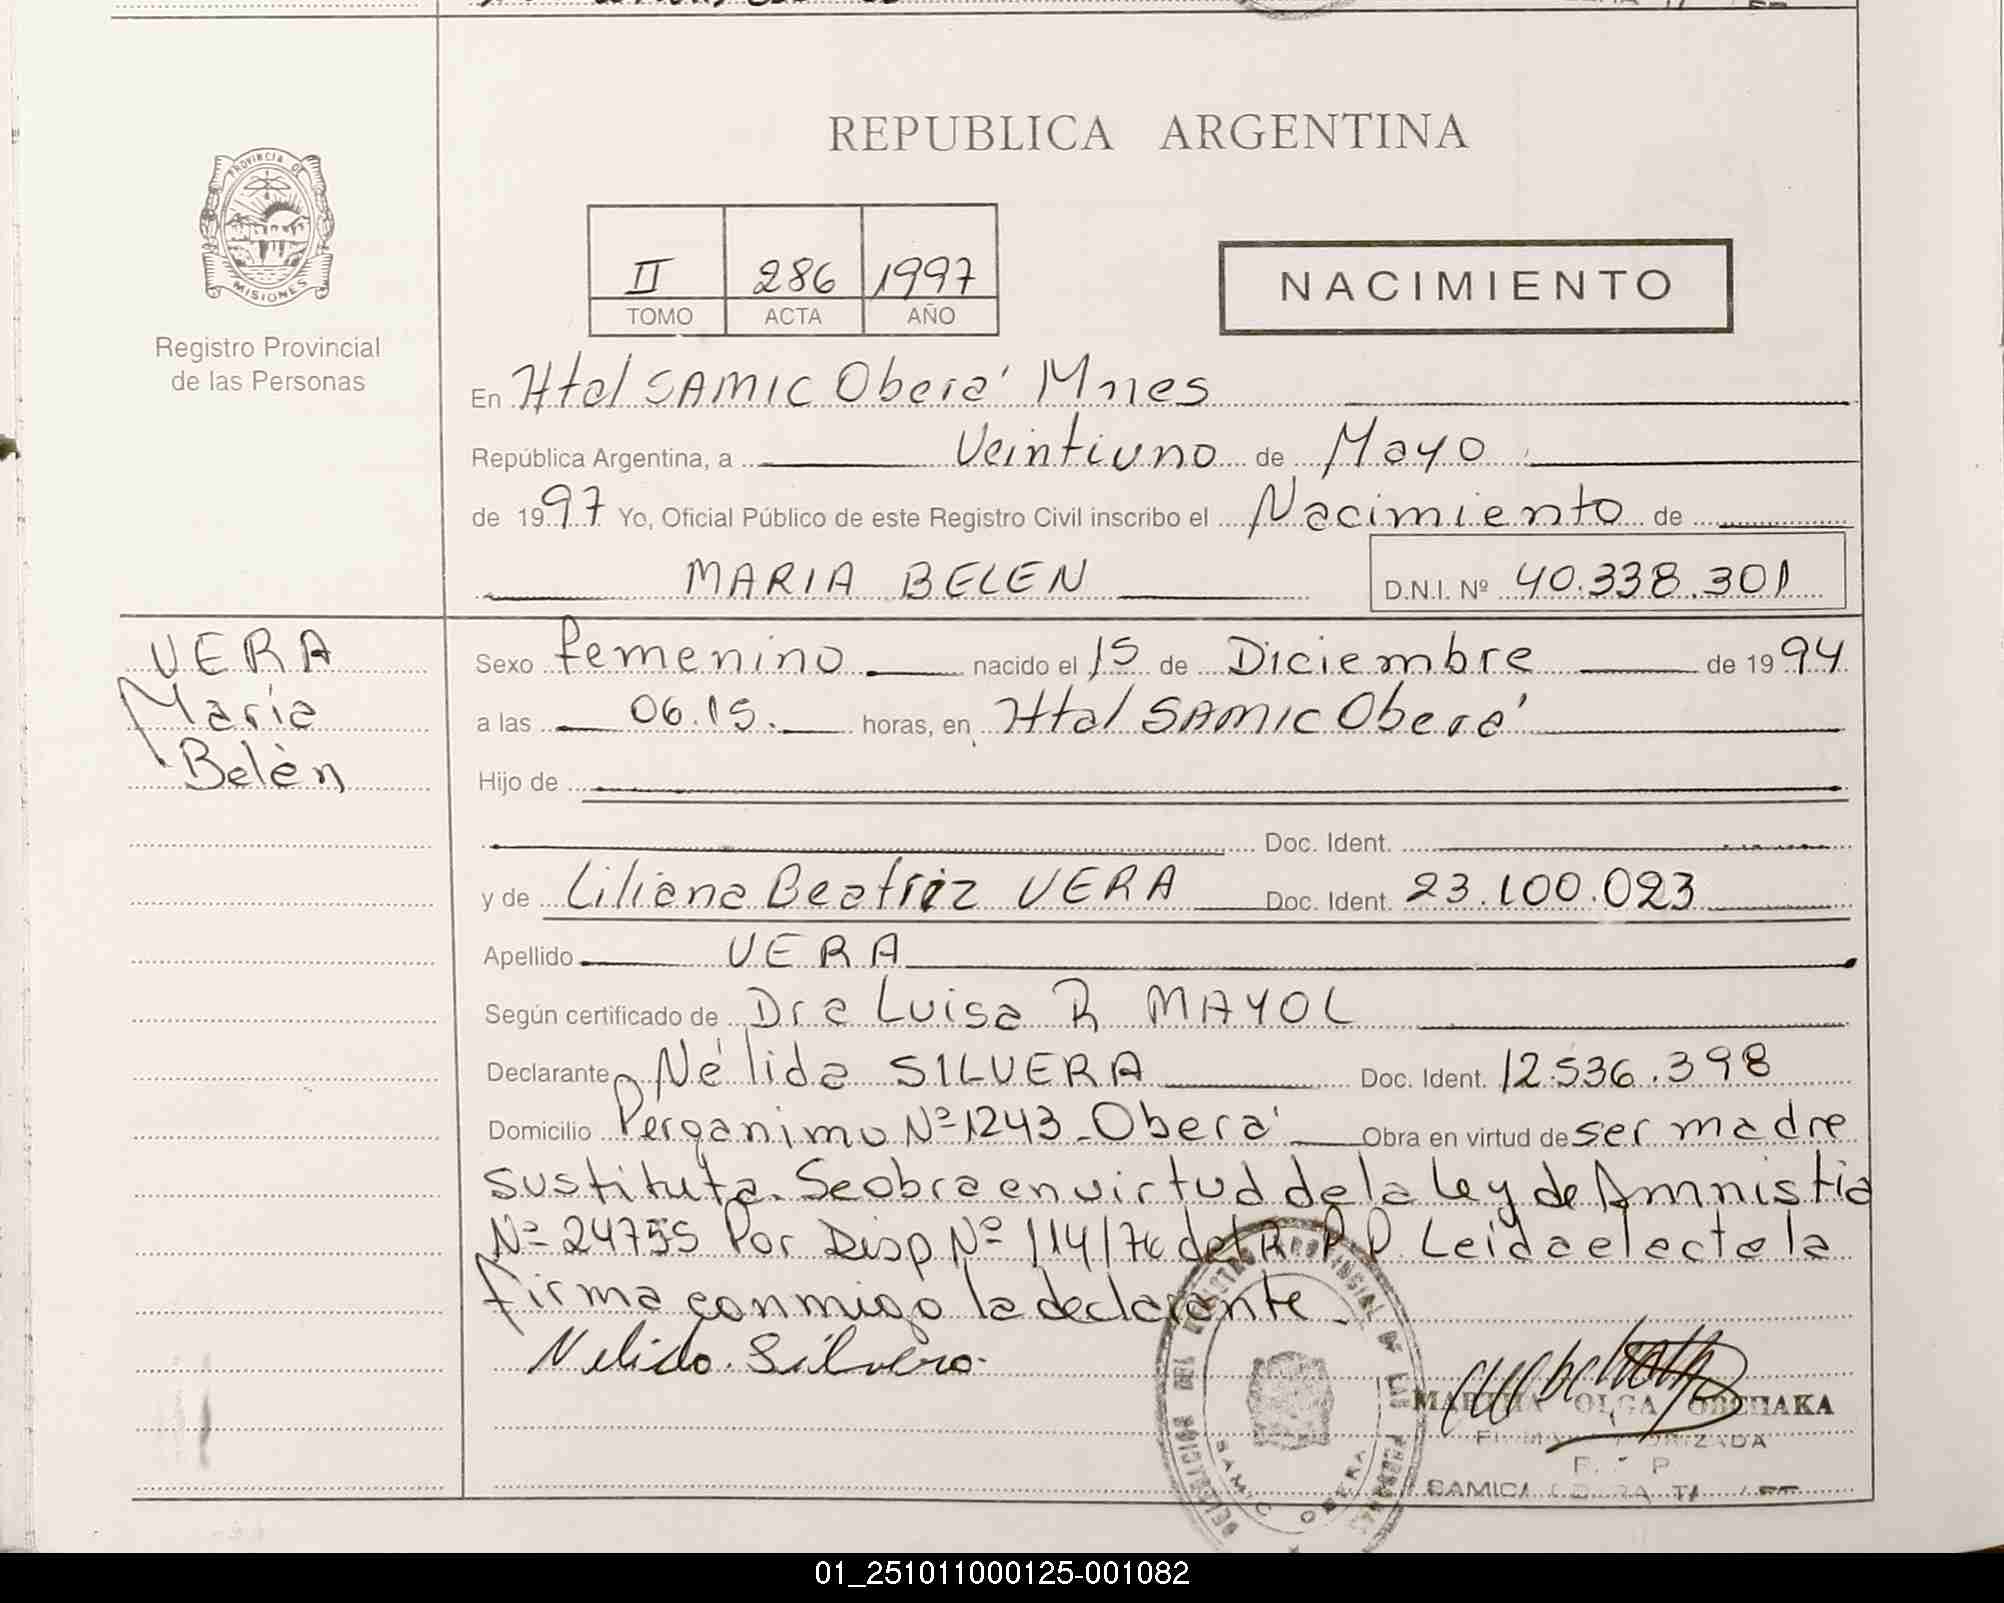 REPUBLICA ARGENTINA
PROVINCIA DE
MISIONES
Registro Provincial
de las Personas
II 286 1997
TOMO ACTA AÑO
NACIMIENTO
En Htal SAMIC Oberá Mnes
República Argentina, a Veintiuno de Mayo
de 1997 Yo, Oficial Público de este Registro Civil inscribo el Nacimiento de
MARIA BELEN D.N.I. Nº 40.338.301
VERA
María
Belén
Sexo femenino nacido el 15 de Diciembre de 1994
a las 06.15. horas, en Htal SAMIC Oberá
Hijo de
Doc. Ident.
y de Liliana Beatriz VERA Doc. Ident. 23.100.023
Apellido VERA
Según certificado de Dra Luisa R MAYOL
Declarante Nélida SILVERA Doc. Ident. 12.536.398
Domicilio Perganimo Nº 1243 - Oberá Obra en virtud de ser madre
sustituta. Se obra en virtud de la Ley de Amnistia
Nº 24755 Por Disp Nº 114/76 del R.P.P. Leída el acta la
firma conmigo la declarante.
Nelida Silvera.
DELEGACION DEL REGISTRO PROVINCIAL DE LAS PERSONAS
SAMIC OBERA
MARTHA OLGA
FIRMA AUTORIZADA
R. P. P
SAMIC
01_251011000125-001082